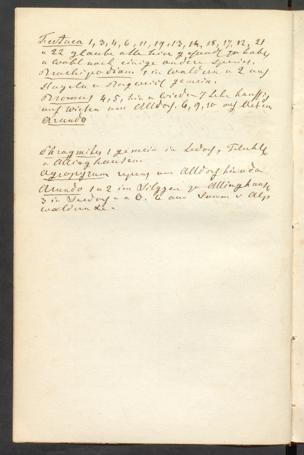 Festuca 1, 3, 4, 6, 11, 19, 13, 14, 18, 17, 12, 21
u 22 glaube alle hier gefunden zu habe
u wohl noch einige andere Species.
Brachipodium 1 in Wäldern u 2 auf
Nageln u Ragerist gemein.
Bromus 4, 5, hin u wieder 7 sehr häufig
auf Wiesen um Altdorf. 6, 9, 10 auf
Arundo
Phragmites 1 gemein in Seedorf, Fluelen
u Attinghausen.
Agropyrum repens um Altdorf hin u da
Arundo 1 u 2 im zu Attinghaus
3 in Seedorf u a O. 6 am u Alp
wäldern